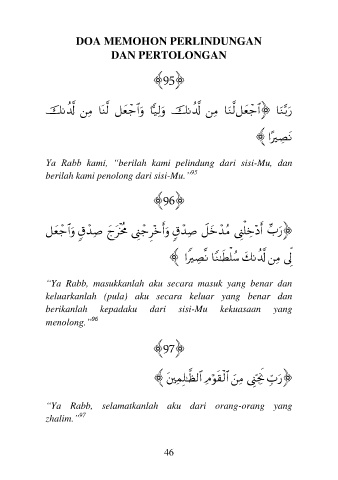 DOA MEMOHON PERLINDUNGAN
DAN PERTOLONGAN
﴾95﴿
رَبَّنَا ﴿ ٱجۡعَل لَّنَا مِن لَّدُنكَ وَلِيّٗا وَٱجۡعَل لَّنَا مِن لَّدُنكَ
نَصِيرًا ﴾
Ya Rabb kami, "berilah kami pelindung dari sisi-Mu, dan
berilah kami penolong dari sisi-Mu."95
﴾96﴿
﴿ رَّبِّ أَدۡخِلۡنِي مُدۡخَلَ صِدۡقٖ وَأَخۡرِجۡنِي مُخۡرَجَ صِدۡقٖ وَٱجۡعَل
لِّي مِن لَّدُنكَ سُلۡطَٰنٗا نَّصِيرٗا ﴾
"Ya Rabb, masukkanlah aku secara masuk yang benar dan
keluarkanlah (pula) aku secara keluar yang benar dan
berikanlah kepadaku dari sisi-Mu kekuasaan yang
menolong."96
﴾97﴿
﴿ رَبِّ نَجِّنِي مِنَ ٱلۡقَوۡمِ ٱلظَّٰلِمِينَ ﴾
"Ya Rabb, selamatkanlah aku dari orang-orang yang
zhalim."97
46